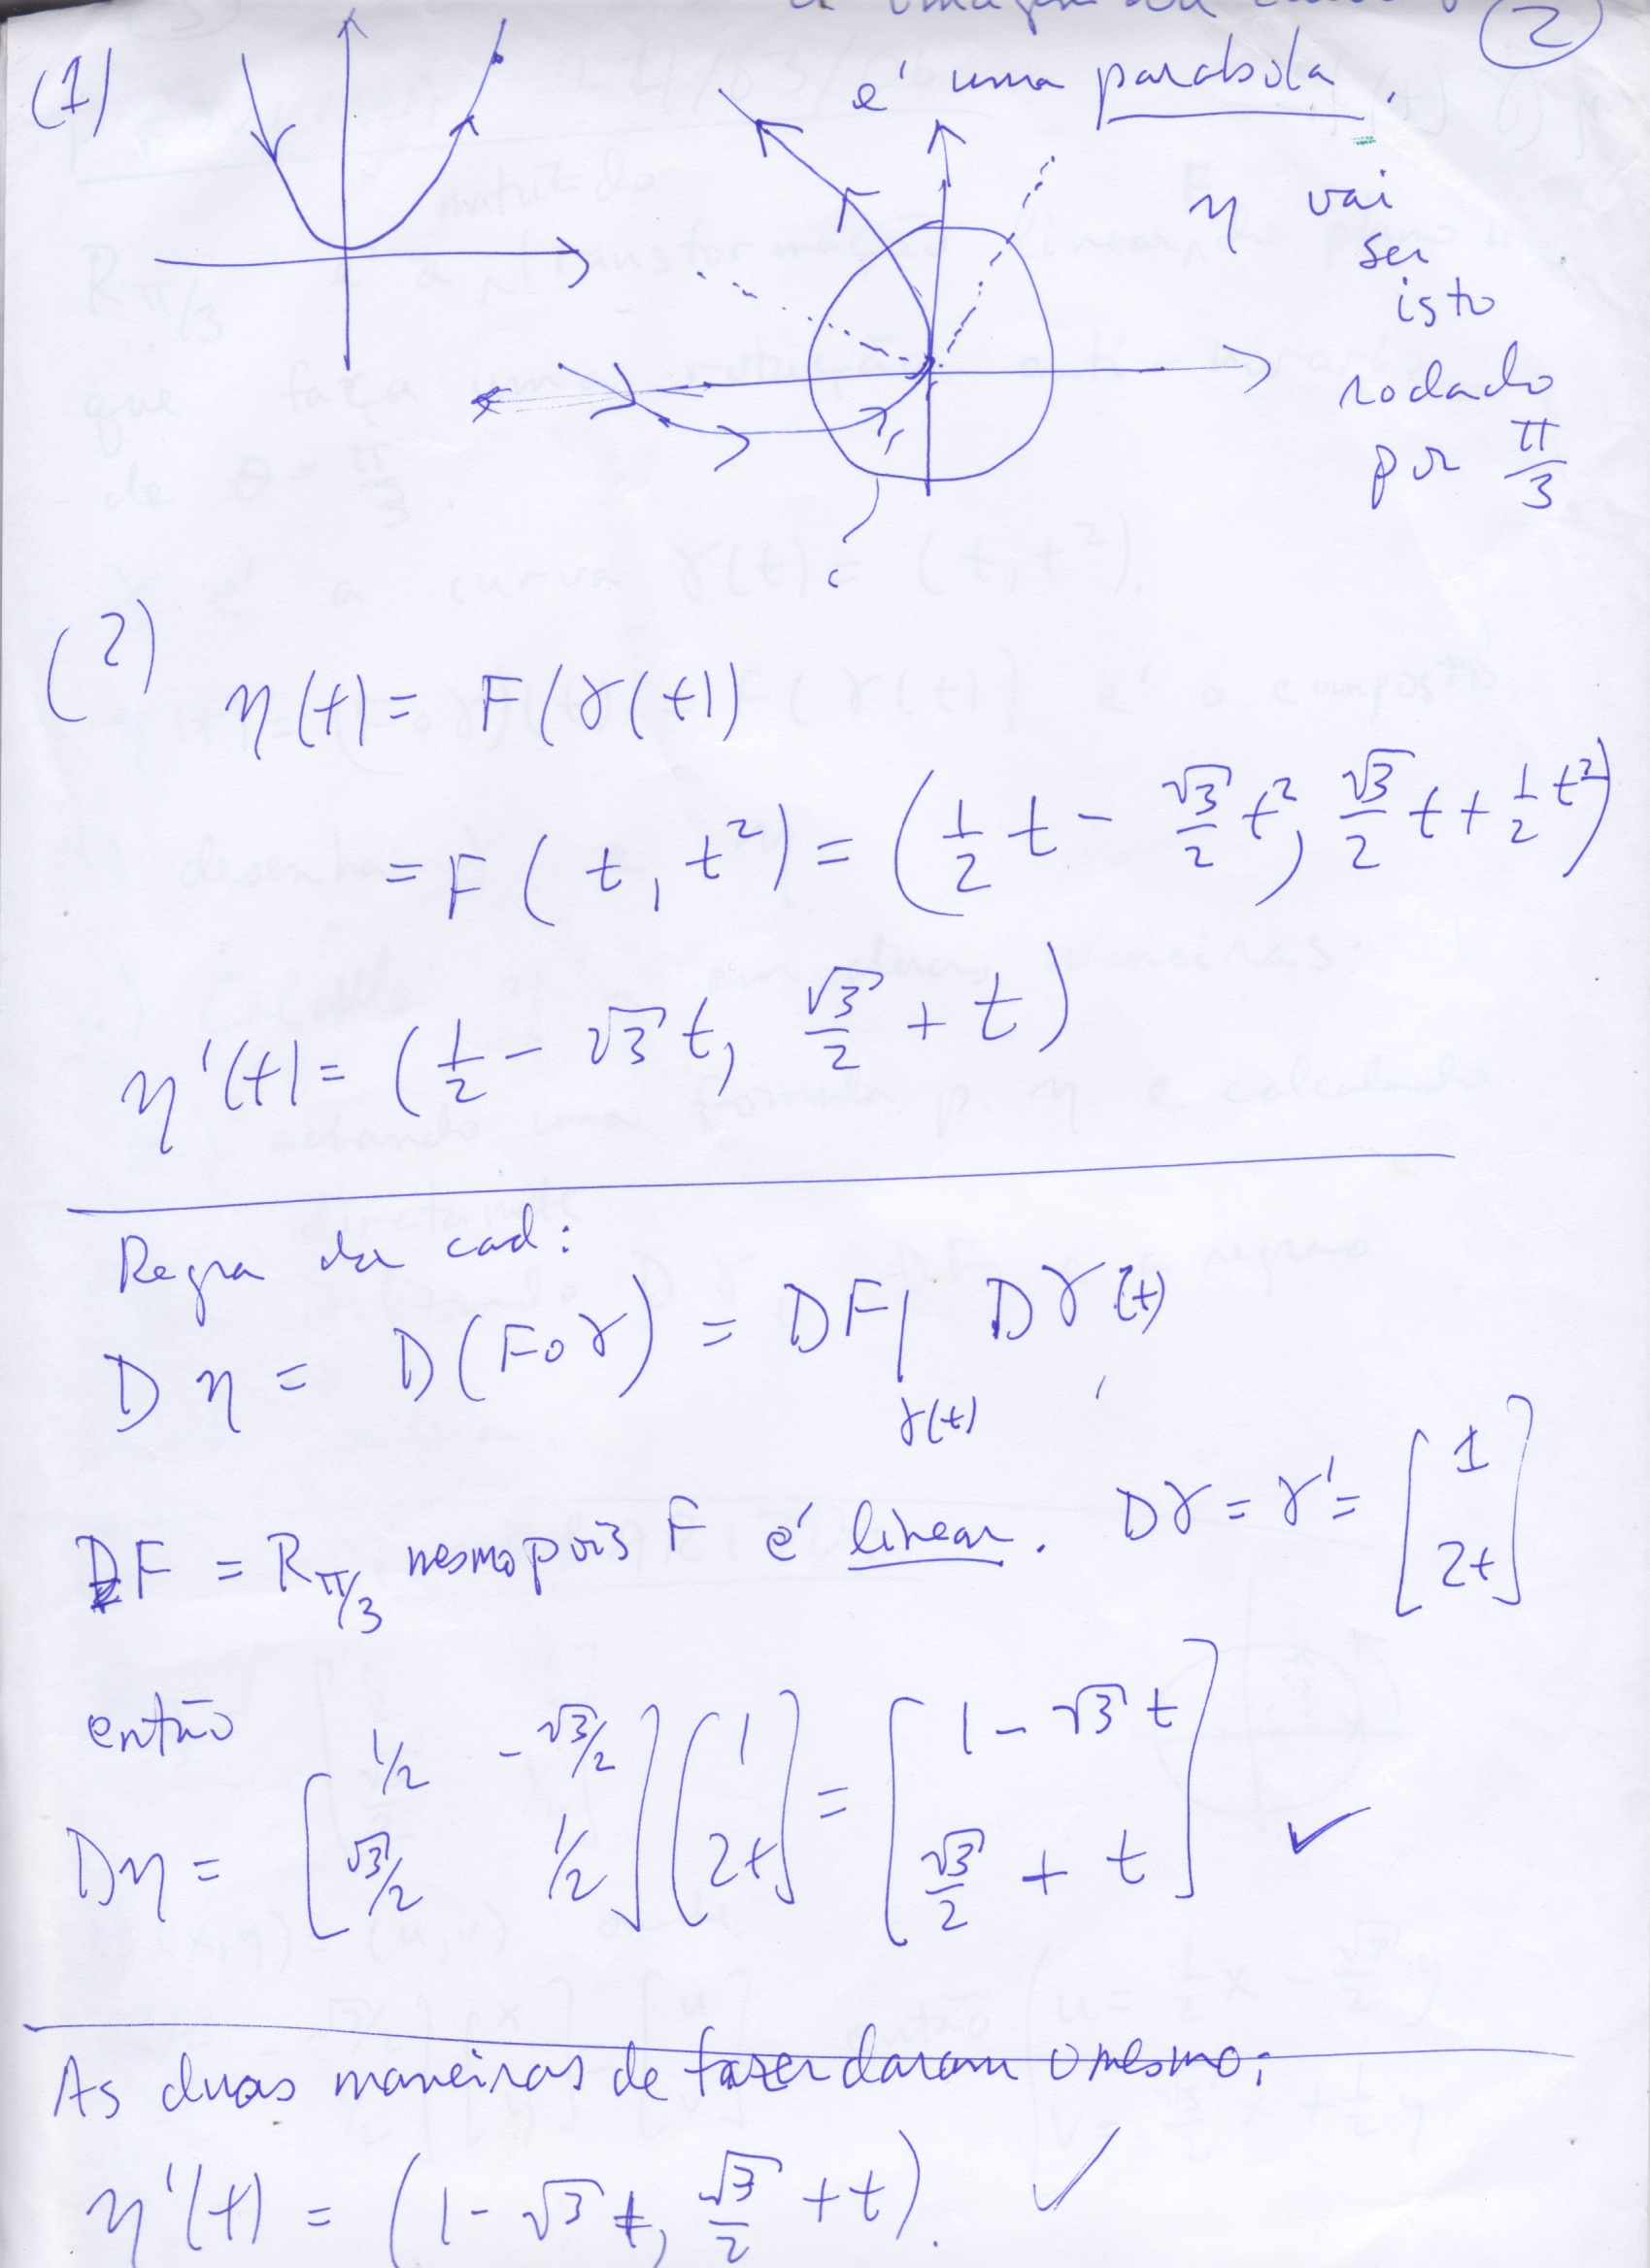 a imagem da curva γ
(2)
(1)
é uma parabola.
η vai
ser
isto
rodado
por π/3
(2)
η(t) = F(γ(t))
= F(t, t²) = (1/2 t - √3/2 t², √3/2 t + 1/2 t²)
η'(t) = (1/2 - √3 t, √3/2 + t)
Regra da cad:
D η = D(F∘γ) = DF|γ(t) Dγ(t)
DF = R π/3 mesmo pois F é linear. Dγ = γ' = [1 2t]
então
Dη = [1/2 -√3/2 √3/2 1/2] (1 2t) = [1 - √3 t √3/2 + t] ✓
As duas maneiras de fazer daram o mesmo:
η'(t) = (1 - √3 t, √3/2 + t). ✓